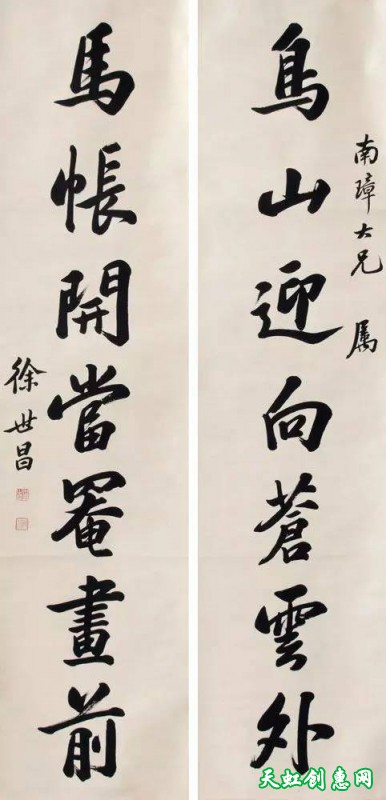 南璋大兄 属
鳥山迎向蒼雲外
馬帳開當罨畫前
徐世昌
天虹创惠网